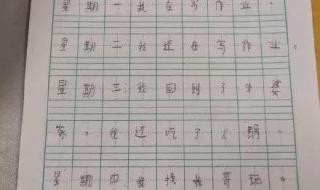 星期一我在写作业，
星期二我还在写作业。
星期三，我回到了外婆
家，我还吃了火锅。
星期四，我找我哥玩